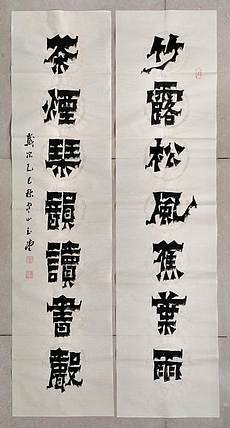 竹露松風蕉葉雨
茶煙琴韻讀書聲